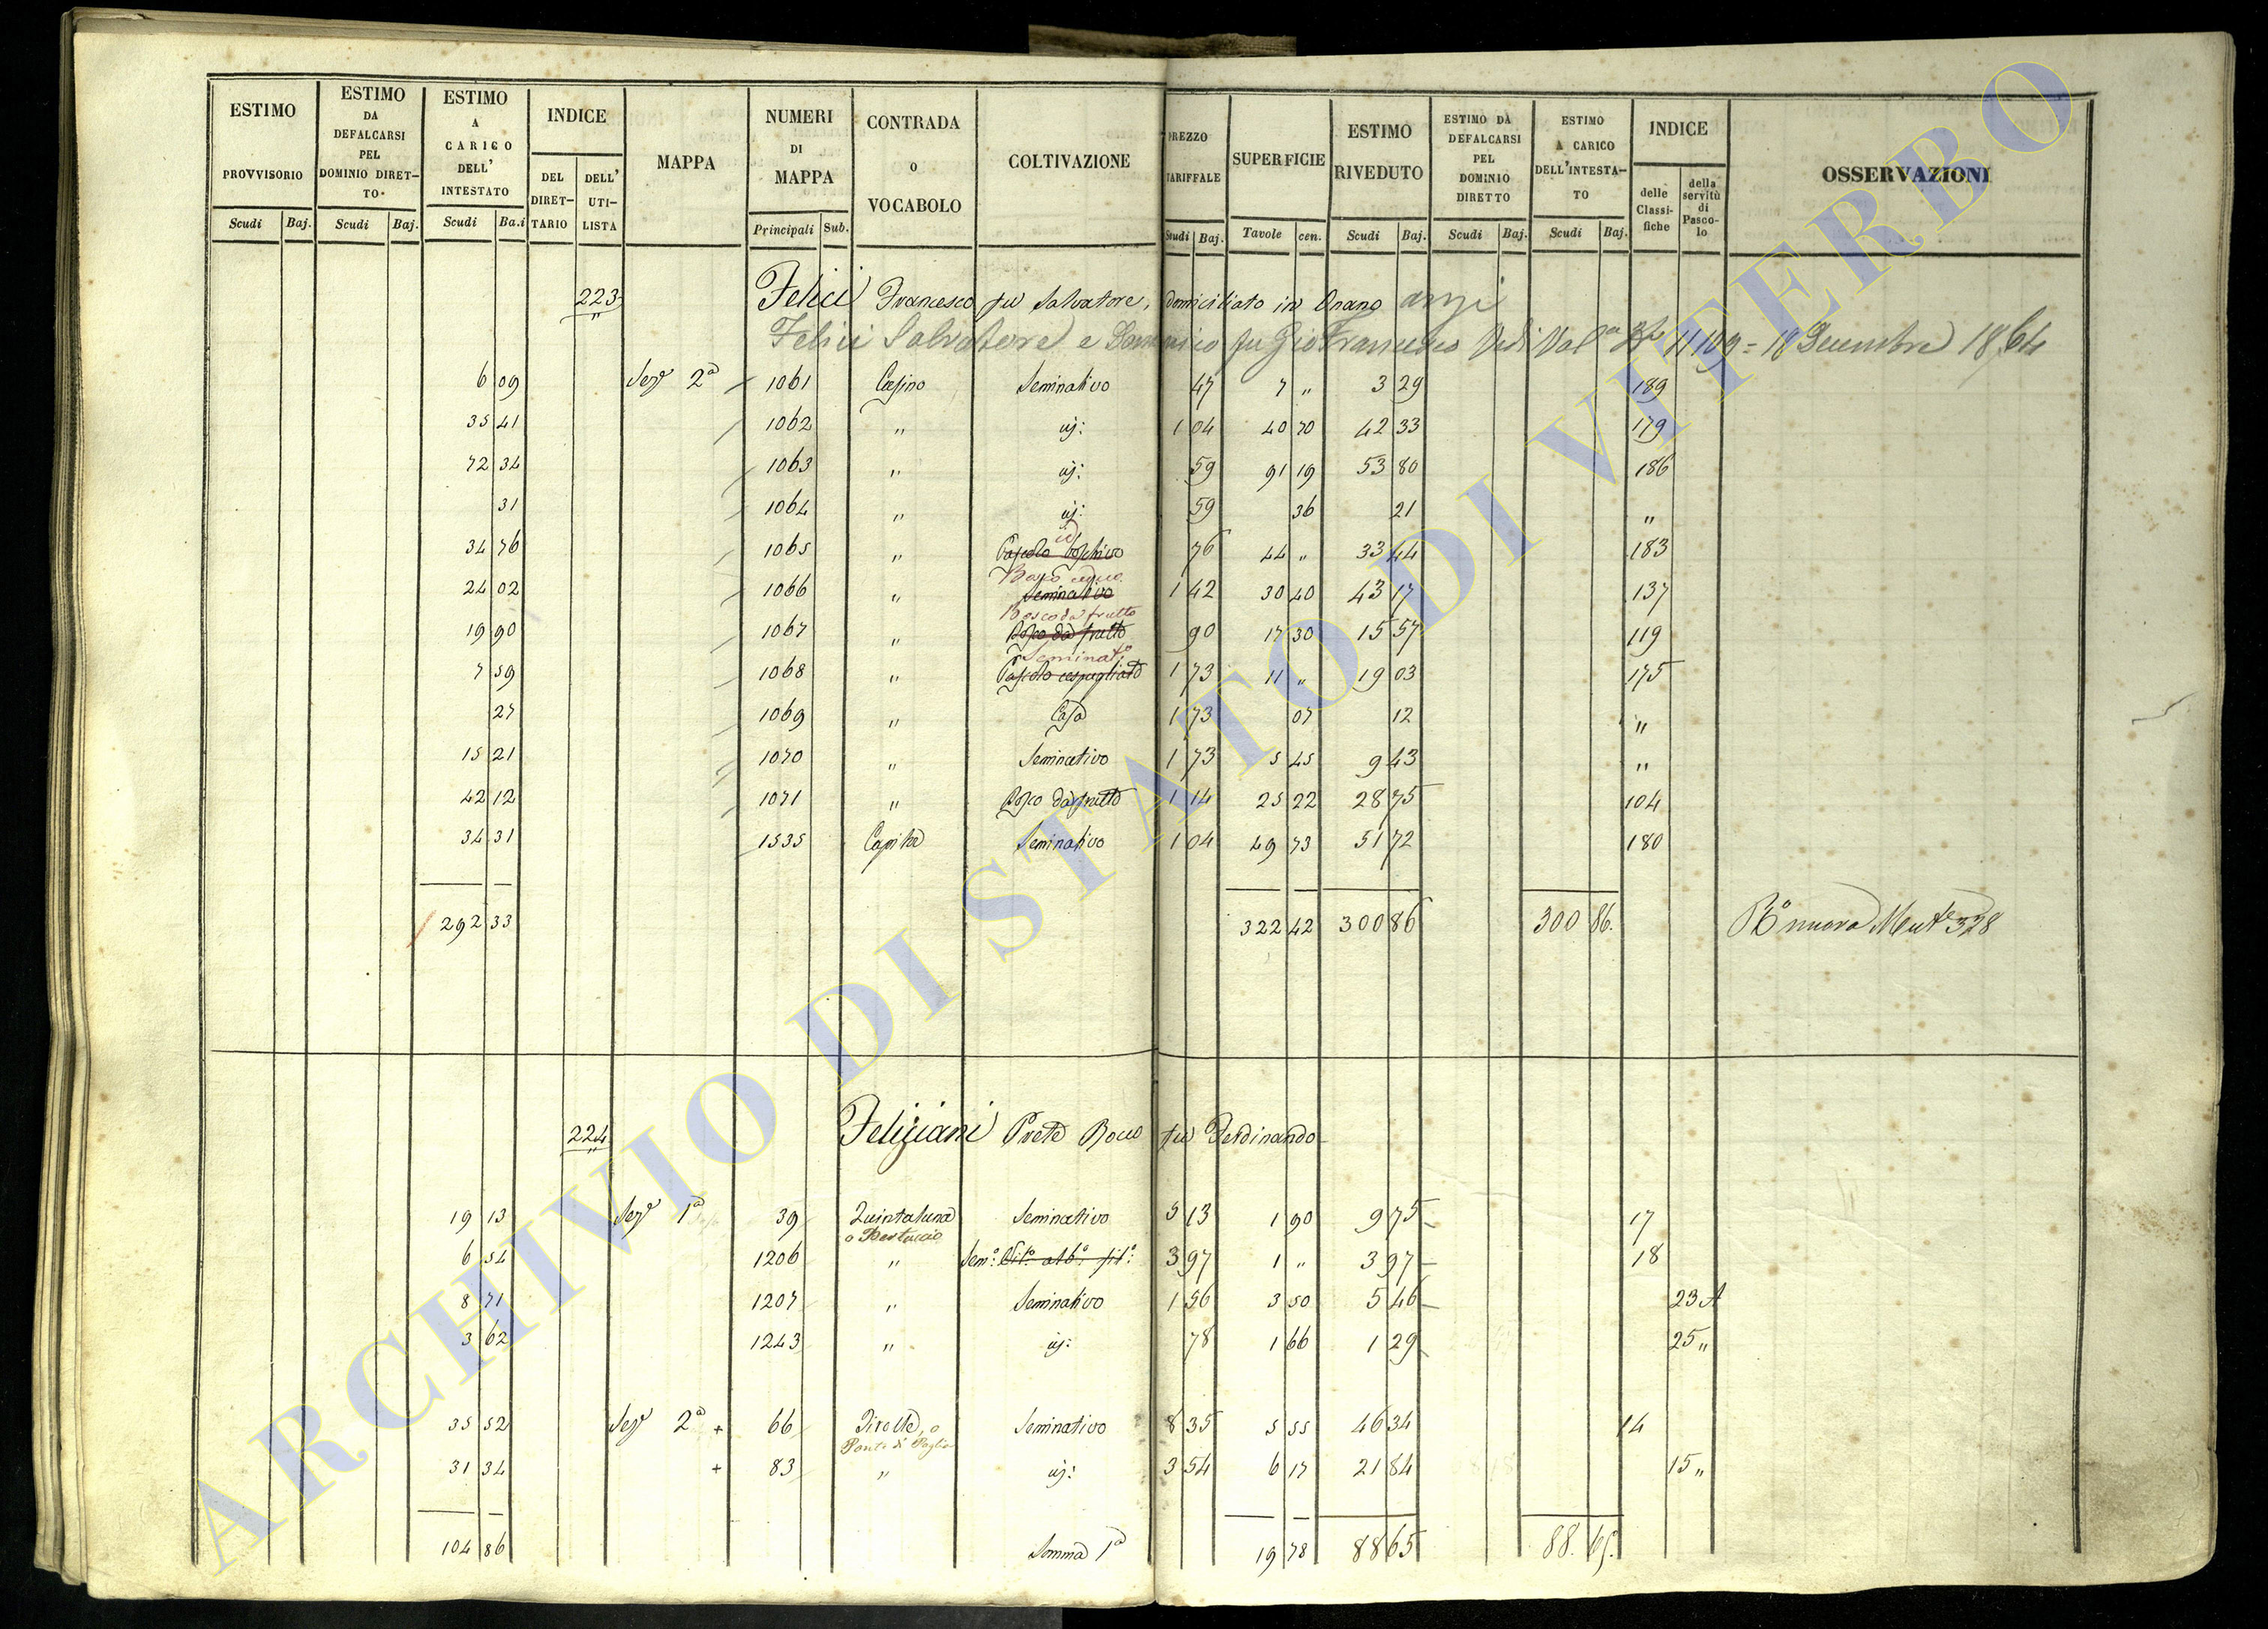 ESTIMO PROVVISORIO | ESTIMO DA DEFALCARSI PEL DOMINIO DIRET-TO. | ESTIMO A CARICO DELL' INTESTATO | INDICE | MAPPA | NUMERI DI MAPPA | CONTRADA o VOCABOLO | COLTIVAZIONE | PREZZO TARIFFALE | SUPERFICIE | ESTIMO RIVEDUTO | ESTIMO DA DEFALCARSI PEL DOMINIO DIRETTO | ESTIMO A CARICO DELL'INTESTA-TO | INDICE | OSSERVAZIONI
DEL DIRET-TARIO | DELL' UTI-LISTA | delle Classi-fiche | della servitù di Pasco-lo
Scudi | Baj. | Scudi | Baj. | Scudi | Ba.i | Principali | Sub. | Scudi | Baj. | Tavole | cen. | Scudi | Baj. | Scudi | Baj. | Scudi | Baj.
223 Felici Francesco fu Salvatore, domiciliato in Onano anzi
Felici Salvatore e Domenico fu Gio Francesco Vedi Vol 11109 = 18 Decembre 1864
6 09 Sez.e 2a 1061 Casino Seminativo 47 7 " 3 29 189
35 41 1062 " id: 1 04 40 70 42 33 179
72 34 1063 " id: 59 91 19 53 80 186
31 1064 " id: 59 36 21 "
id
34 76 1065 " Pascolo boschivo 76 44 " 33 44 183
Bosco ceduo
24 02 1066 " Seminativo 1 42 30 40 43 17 137
Bosco da frutto
19 90 1067 " Bosco da frutto 90 17 30 15 57 119
Seminato
7 59 1068 " Pascolo cespugliato 1 73 11 " 19 03 175
27 1069 " Casa 1 73 07 12 "
15 21 1070 " Seminativo 1 73 5 45 9 43 "
42 12 1071 " Bosco da frutto 1 14 25 22 28 75 104
34 31 1535 Capita Seminativo 1 04 49 73 51 72 180
292 33 322 42 300 86 300 86. Ro nuova Mente 328
224 Feliziani Prete Rocco fu Ferdinando
19 13 Sez.e 1a 39 Quintaluna Seminativo 5 13 1 90 9 75 17
o Bertuccio
6 54 1206 " Sem.o Vit.o alb.o fil.o 3 97 1 " 3 97 18
8 71 1207 " Seminativo 1 56 3 50 5 46 23 A
3 62 1243 " id: 78 1 66 1 29 25 "
35 52 Sez.e 2a + 66 Pirolle, o Seminativo 8 35 5 55 46 34 14
Ponte di Paglia
31 34 + 83 " id: 3 54 6 17 21 84 15 "
104 86 Somma 1a 19 78 88 65 88. 65.
ARCHIVIO DI STATO DI VITERBO